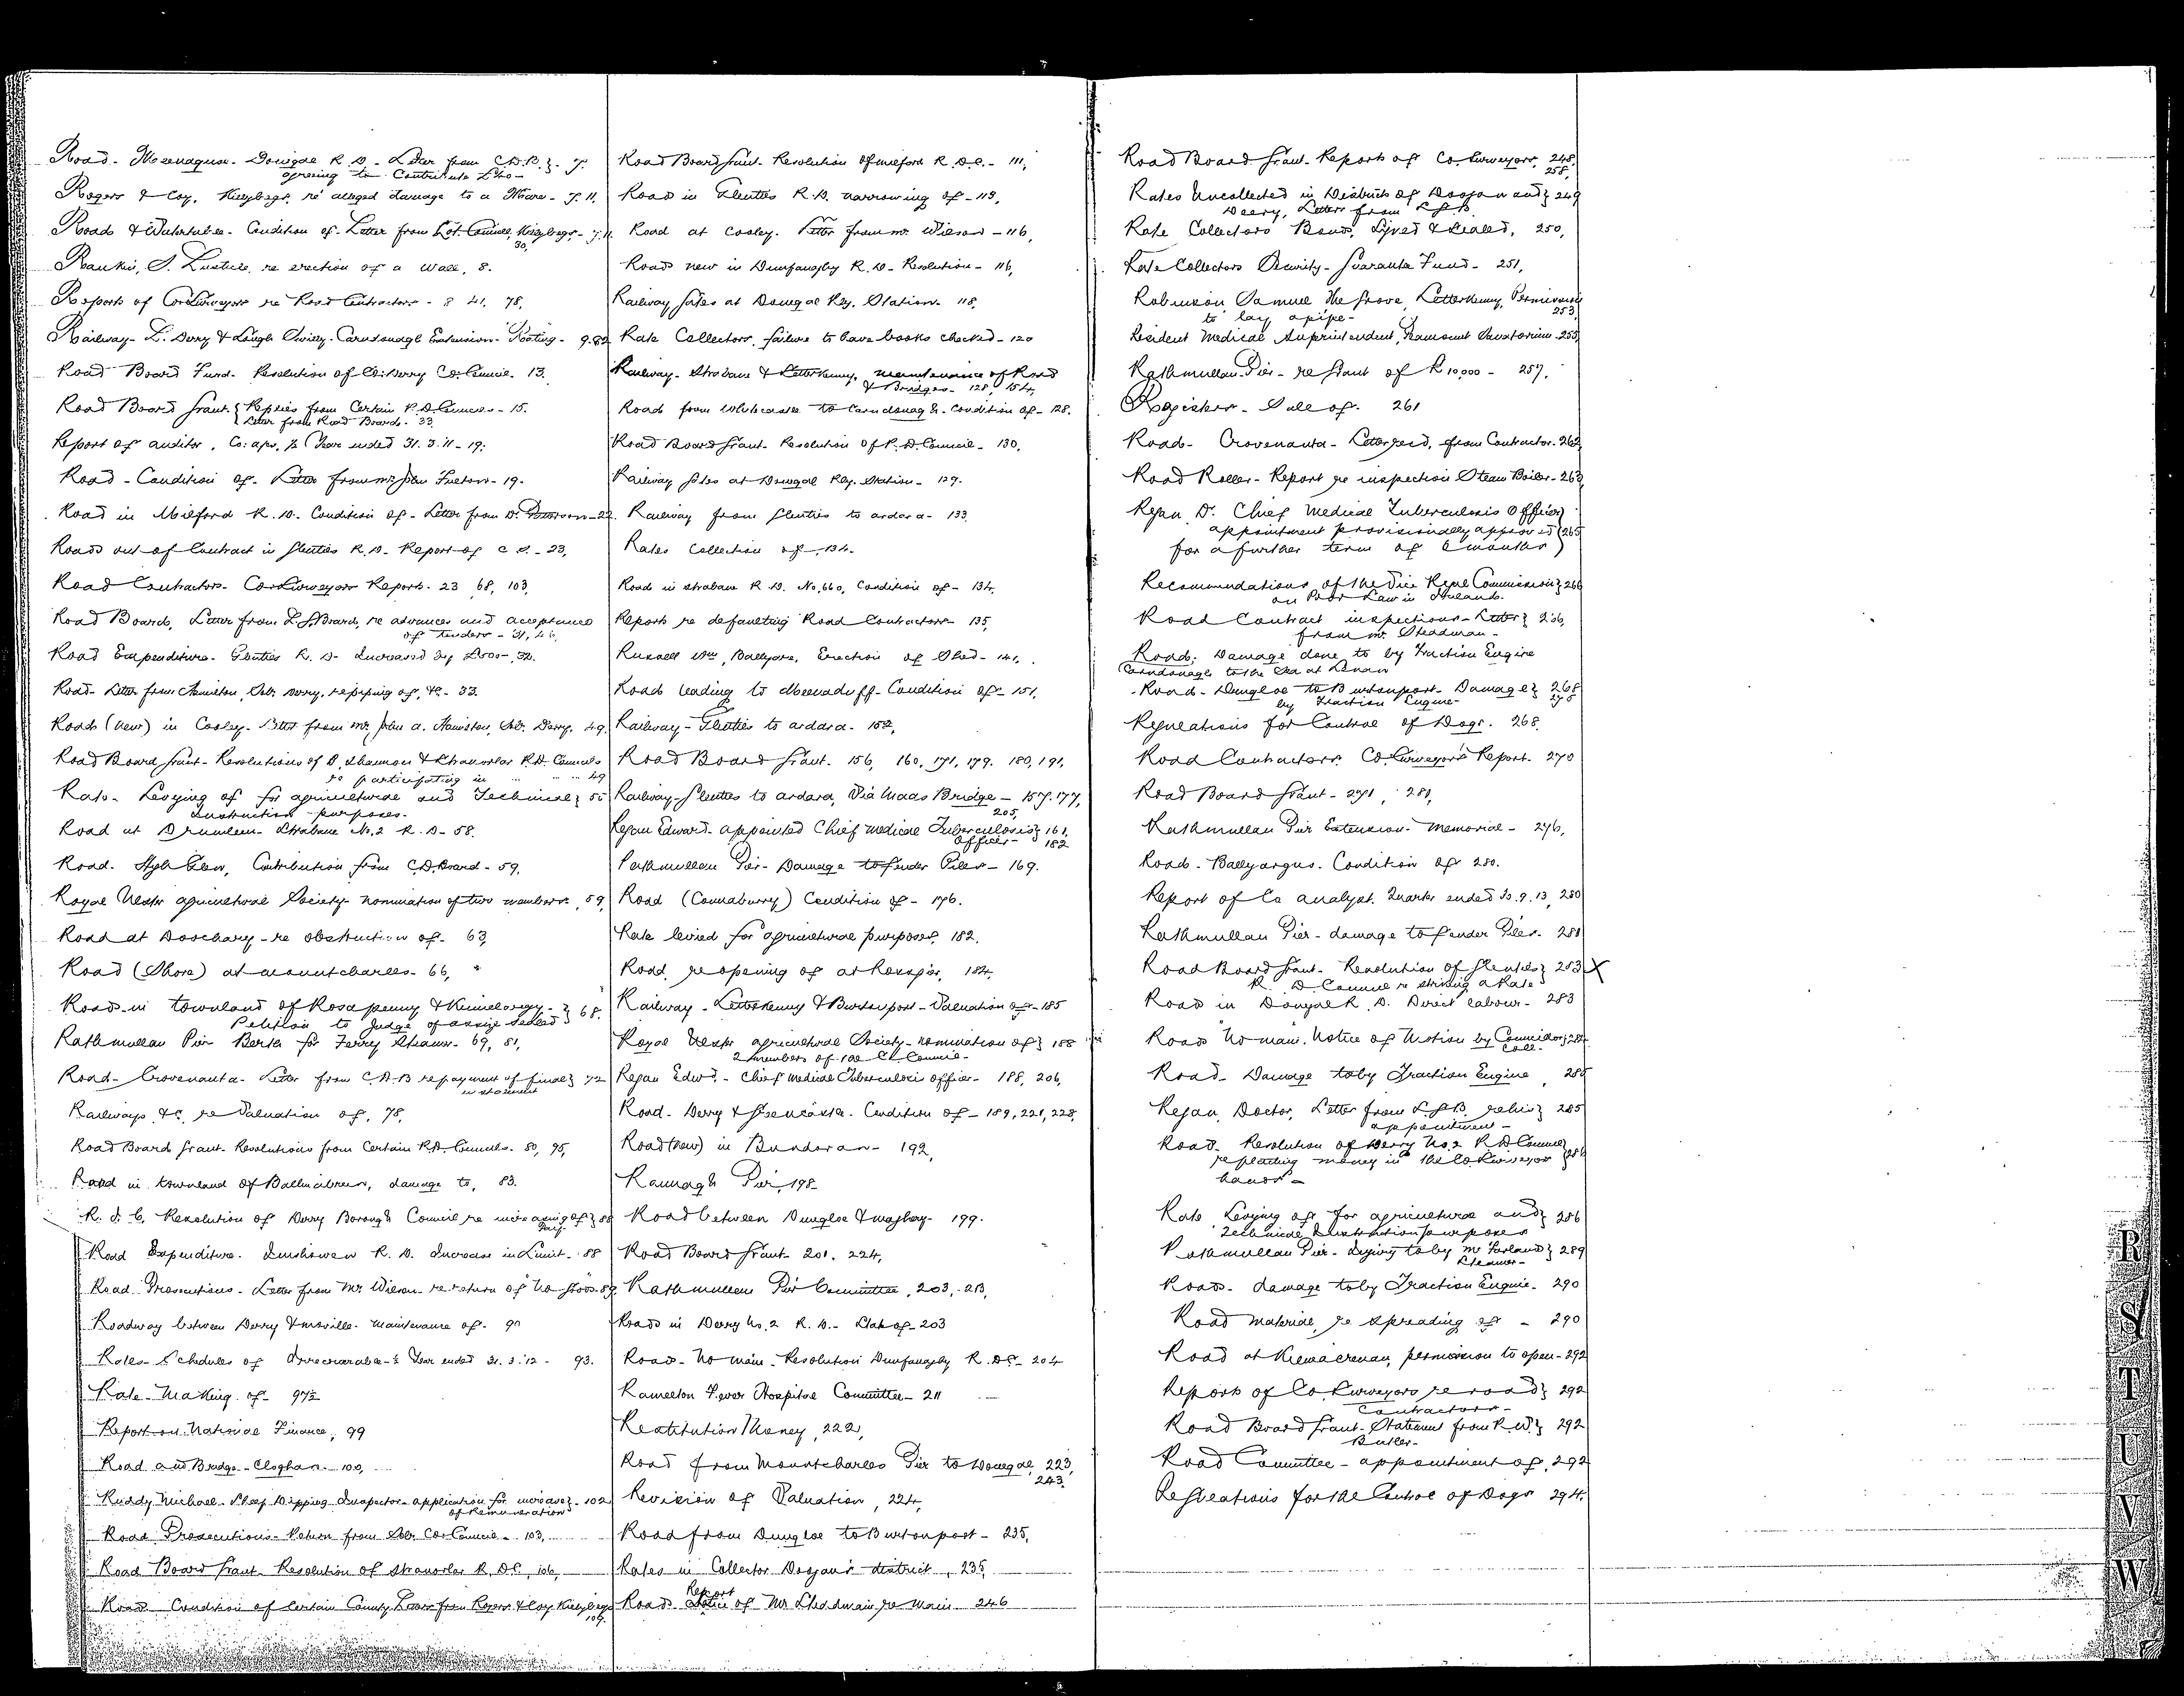 Road - Meenaguse - Donegal R.D. - Letter from C.D.B. } - 7.
agreeing to Contribute £40 -
Rogers & Coy, Killybegs, re alleged damage to a Horse - 7. 11.
Roads & Watertables - Condition of - Letter from Killybegs - 7. 11.
30,
Rankin, S. re erection of a Wall, 8.
Reports of Co. Surveyors re Road Contractors - 8 41, 78,
Railway - L. Derry & Lough Swilly - Carndonagh Extension - 9. 82
Road Board Fund - Resolution of Co. Derry Co. Council. 13.
Road Board Grant { Replies from Certain R.D. Councils - 15.
{ Letter from Road Board - 33.
Report of Auditor, Co: aps, ½ Year ended 31. 3. 11 - 19.
Road - Condition of - Letter from Mr John - 19.
Road in Milford R.D. Condition of - Letter from Dr. Patterson - 22.
Roads out of Contract in Glenties R.D. Report of C.S. - 23,
Road Contractors - Co. Surveyors Reports - 23 68, 103,
Road Boards, Letter from L.G. Board, re advances and acceptance
of tenders - 31, 46,
Road Expenditure - Glenties R.D. Increased by £500 - 32.
Road - Letter from Hamilton, Solr. Derry, re piping of, &c - 33.
Roads (New) in Cooley - Letter from Mr John A. Hamilton, Solr. Derry. 49.
Road Board Grant - Resolutions of B. Shannon & Stranorlar R.D. Councils
re participating in " " " 49
Rate - Levying of for agricultural and Technical } 55
Instruction purposes -
Road at Drumleen - Strabane No. 2 R.D - 58.
Road - High Glen, Contribution from C.D. Board - 59,
Royal Ulster Agricultural Society - nomination of two members, 59,
Road at Doochary - re obstruction of - 63,
Road (Shore) at Mountcharles - 66,
Roads in townland of Rosapenny & } 68.
Petition to Judge of assize
Rathmullan Pier Berth for Ferry Steamer - 69, 81,
Road - Crovenanta - Letter from C.D.B re payment of final } 72
instalment
Railways &c, re Valuation of, 78,
Road Board Grant - Resolutions from Certain R.D. Councils - 80, 95,
Road in townland of, damage to, 83.
R.I.C. Resolution of Derry Borough Council re increasing of } 88
pay -
Road Expenditure - Inishowen R.D. Increase in Limit - 88
Road Prosecutions - Letter from Mr Wilson - re return of 89.
Roadway between Derry & Moville - Maintenance of - 90
Rates - Schedules of Irrecoverable - ½ Year ended 31. 3. '12 - 93.
Rate - Making of - 97½
Report on National Finance, 99
Road and Bridge - Cloghan - 100,
Ruddy Michael - Sheep Dipping Inspector - application for increase } - 102
of Remuneration
Road Prosecutions - Return from Solr. Co. Council - 103,
Road Board Grant - Resolution of Stranorlar R.D.C, 106,
Roads Condition of Certain County, Letter from Rogers & Coy Killybegs
109.
Road Board Grant - Resolution of Milford R.D.C. - 111,
Road in Glenties R.D. narrowing of - 113,
Road at Cooley. Letter from Mr Wilson - 116,
Roads new in Dunfanaghy R.D. - Resolution - 116,
Railway Gates at Donegal Rly. Station - 118,
Rate Collectors, failure to have books checked - 120
Railway - Strabane & Letterkenny, maintenance of Road
& Bridges - 128, 154,
Roads from Whitecastle to Carndonagh - Condition of - 128.
Road Board Grant - Resolution of R.D. Council - 130,
Railway Gates at Donegal Rly. Station - 129.
Railway from Glenties to Ardara - 133
Rates Collection of - 134.
Road in Strabane R.D. No. 660, Condition of - 134,
Reports re defaulting Road Contractors - 135,
Russell Wm, Ballyare, Erection of Shed - 141,
Road leading to Meenaduff - Condition of - 151,
Railway - Glenties to Ardara - 152,
Road Board Grant - 156, 160, 171, 179. 180, 191,
Railway - Glenties to Ardara, Via Maas Bridge - 157. 177,
205,
Regan Edward - appointed Chief Medical Tuberculosis } 161,
Officer - 182
Rathmullan Pier - Damage to fender Piles - 169.
Road (Connaburry) Condition of - 176.
Rate levied for agricultural purposes, 182,
Road, re opening of at, 184,
Railway - Letterkenny & Burtonport - Valuation of - 185
Royal Ulster Agricultural Society - nomination of } 188
2 members of the Co. Council -
Regan Edwd. - Chief Medical Tuberculosis officer - 188, 206,
Road - Derry & Condition of - 189, 221, 228,
Road (New) in Bundoran - 192,
Rannagh Pier, 198
Road between Dungloe & Maghery - 199.
Road Board Grant - 201, 224,
Rathmullan Pier Committee, 203, 213,
Roads in Derry No. 2 R.D. - State of - 203
Road - No main - Resolution Dunfanaghy R.D.C - 204
Ramelton Fever Hospital Committee - 211
Restitution Money, 222,
Road from Mountcharles Pier to Donegal, 223,
243,
Revision of Valuation, 224,
Road from Dungloe to Burtonport - 235,
Rates in Collector district, 235,
Report
Road of Mr Steadman re Main 246
Road Board Grant - Reports of Co. Surveyors, 248,
258,
Rates Uncollected in Districts of and } 249
Deery, Letters from L.G.B.
Rate Collectors Bonds, Signed & Sealed, 250,
Rate Collectors Security - Guarantee Fund - 251,
Robinson Samuel The Grove, Letterkenny, Permission
to lay a pipe - 253
Resident Medical Superintendent, Peamount Sanatorium - 255,
Rathmullan Pier - re Grant of £10,000 - 257,
Registers - Sale of - 261
Road - Crovenanta - Letter recd. from Contractor - 262,
Road Roller - Report re inspection Steam Boiler - 263,
Regan, Dr. Chief Medical Tuberculosis Officer }
appointment provisionally approved } 265
for a further term of 6 months )
Recommendations of the Vice Regal Commission } 266
on Poor Law in Ireland.
Road Contract inspections - Letter } 266,
from Mr. Steadman -
Road; Damage done to by Traction Engine
Carndonagh to the Sea at Lenan
Road - Dungloe to Burtonport - Damage } 268
by Traction Engine - 278
Regulations for Control of Dogs. 268.
Road Contractors Co. Surveyors' Report - 270
Road Board Grant - 271, 281,
Rathmullan Pier Extension - Memorial - 276,
Road - Ballyargus - Condition of 280.
Report of Co Analyst. Quarter ended 30. 9. 13, 280
Rathmullan Pier - damage to fender Piles - 281
Road Board Grant - Resolution of Glenties } 283 X
R. D. Council re striking a Rate
Road in Donegal R.D. Direct labour - 283
Roads No main, Notice of Motion by Councillor } 284
Coll -
Road - Damage to by Traction Engine, 285
Regan, Doctor, Letter from L.G.B. re his } 285
appointment -
Road - Resolution of Derry No. 2 R.D Council
re placing money in the Co Surveyor } 286
hands -
Rate Levying of for agriculture and } 286
Technical Instruction purposes
Rathmullan Pier - Injury to by McFarland } 289
Steamer -
Roads - damage to by Traction Engine - 290
Road Material, re Spreading of - 290
Road at Kilmacrenan, permission to open - 292
Reports of Co. Surveyors re road } 292
Contractors -
Road Board Grant - Statement from R.W. } 292
Butler -
Road Committee - appointment of, 292
Regulations for the Control of Dogs 294.
R
S
T
U
V
W